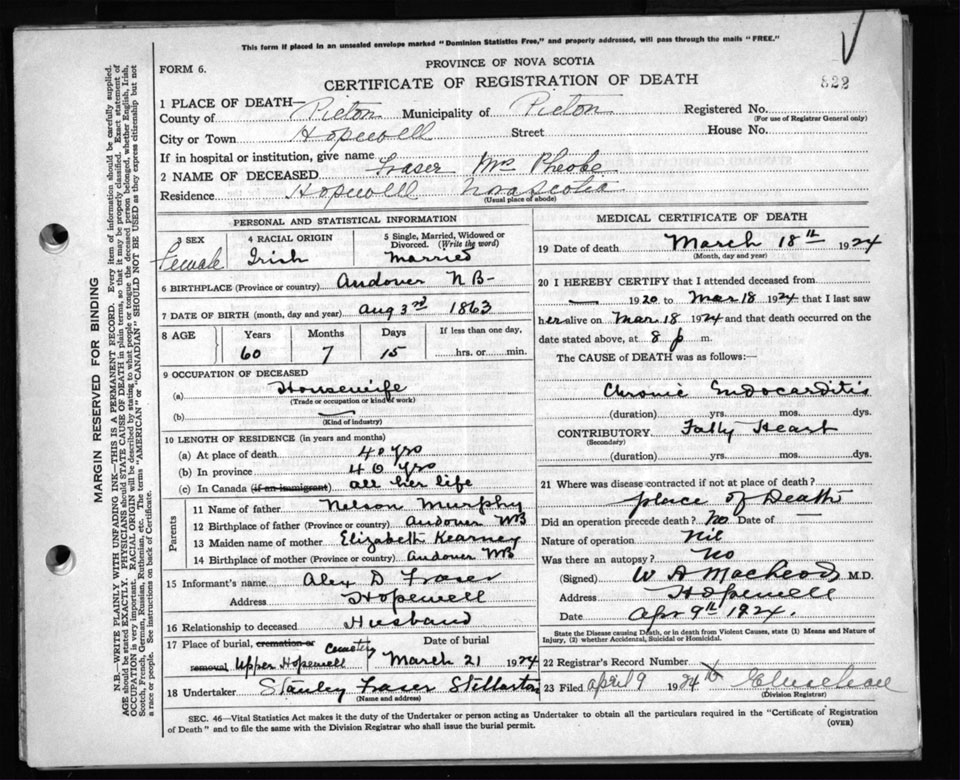 This form if placed in an unsealed envelope marked "Dominion Statistics Free," and properly addressed, will pass through the mails "FREE."
PROVINCE OF NOVA SCOTIA
FORM 6.
CERTIFICATE OF REGISTRATION OF DEATH
822
1 PLACE OF DEATH—
County of Pictou Municipality of Pictou Registered No.
(For use of Registrar General only)
City or Town Hopewell Street House No.
If in hospital or institution, give name
2 NAME OF DECEASED Fraser Mrs Pheobe
Residence Hopewell Nova Scotia
(Usual place of abode)
MARGIN RESERVED FOR BINDING
N.B.—WRITE PLAINLY WITH UNFADING INK—THIS IS A PERMANENT RECORD. Every item of information should be carefully supplied.
AGE should be stated EXACTLY. PHYSICIANS should STATE CAUSE OF DEATH in plain terms, so that it may be properly classified. Exact statement of
OCCUPATION is very important. RACIAL ORIGIN will be described by stating to what people or tongue the deceased person belonged, whether English, Irish,
Scotch, French, German, Russian, Ruthenian, etc. The terms "AMERICAN" or "CANADIAN" SHOULD NOT BE USED as they express citizenship but not
a race or people. See instructions on back of Certificate.
PERSONAL AND STATISTICAL INFORMATION
3 SEX
Female
4 RACIAL ORIGIN
Irish
5 Single, Married, Widowed or
Divorced. (Write the word)
Married
6 BIRTHPLACE (Province or country) Andover NB-
7 DATE OF BIRTH (month, day and year) Aug 3rd 1863
8 AGE Years Months Days If less than one day,
60 7 15 hrs. or min.
9 OCCUPATION OF DECEASED
(a) Housewife
(Trade or occupation or kind of work)
(b) —
(Kind of industry)
10 LENGTH OF RESIDENCE (in years and months)
(a) At place of death 40 yrs
(b) In province 40 yrs
(c) In Canada (if an immigrant) all her life
Parents
11 Name of father Nelson Murphy
12 Birthplace of father (Province or country) Andover NB
13 Maiden name of mother Elizabeth Kearney
14 Birthplace of mother (Province or country) Andover NB
15 Informant's name Alex D Fraser
Address Hopewell
16 Relationship to deceased Husband
17 Place of burial, cremation or Cemetery Date of burial
removal Upper Hopewell March 21 1924
18 Undertaker Stanley Fraser Stellarton
(Name and address)
MEDICAL CERTIFICATE OF DEATH
19 Date of death March 18th 1924
(Month, day and year)
20 I HEREBY CERTIFY that I attended deceased from
— 1920 to Mar 18 1924 that I last saw
her alive on Mar 18 1924 and that death occurred on the
date stated above, at 8 p m.
The CAUSE of DEATH was as follows:—
Chronic Endocarditis
(duration) yrs. mos. dys.
CONTRIBUTORY Fatty Heart
(Secondary)
(duration) yrs. mos. dys.
21 Where was disease contracted if not at place of death?
place of Death
Did an operation precede death? No Date of —
Nature of operation Nil
Was there an autopsy? No
(Signed) W A MacLeod M.D.
Address Hopewell
Date Apr 9th 1924.
State the Disease causing Death, or in death from Violent Causes, state (1) Means and Nature of
Injury, (2) whether Accidental, Suicidal or Homicidal.
22 Registrar's Record Number
23 Filed April 9 1924
(Division Registrar)
SEC. 46—Vital Statistics Act makes it the duty of the Undertaker or person acting as Undertaker to obtain all the particulars required in the "Certificate of Registration
of Death" and to file the same with the Division Registrar who shall issue the burial permit.
(OVER)